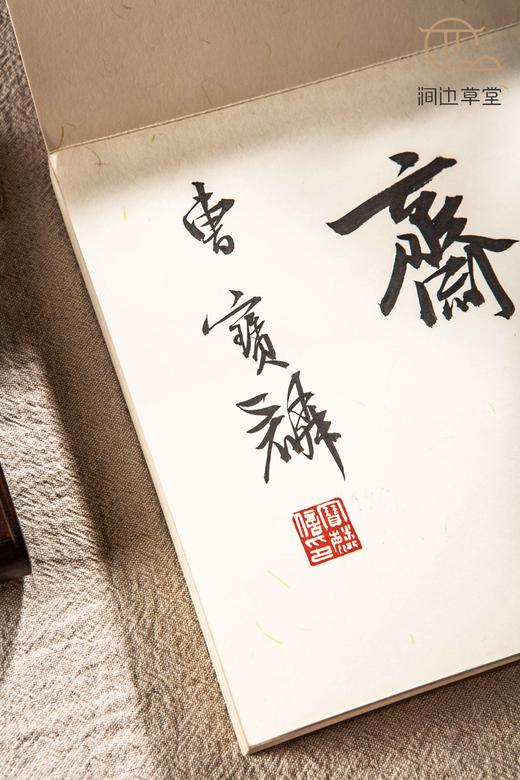 涧边草堂
齋
曹寶麟